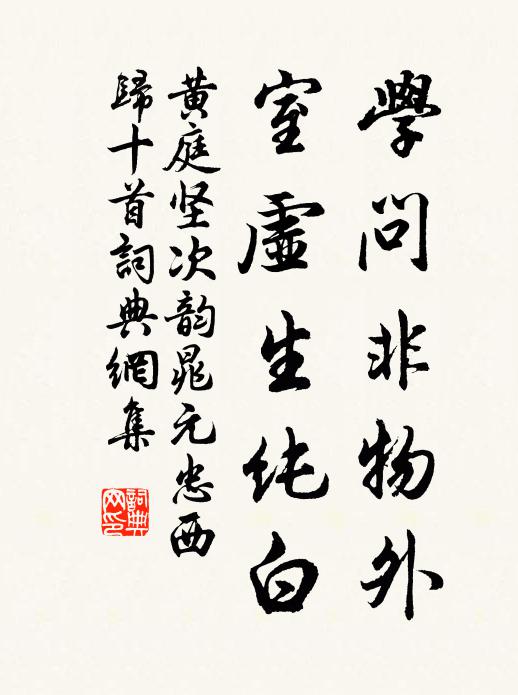 學問非物外
室虛生纯白
黄庭坚次韵晁元忠西
歸十首詞典網集
詞典
网印